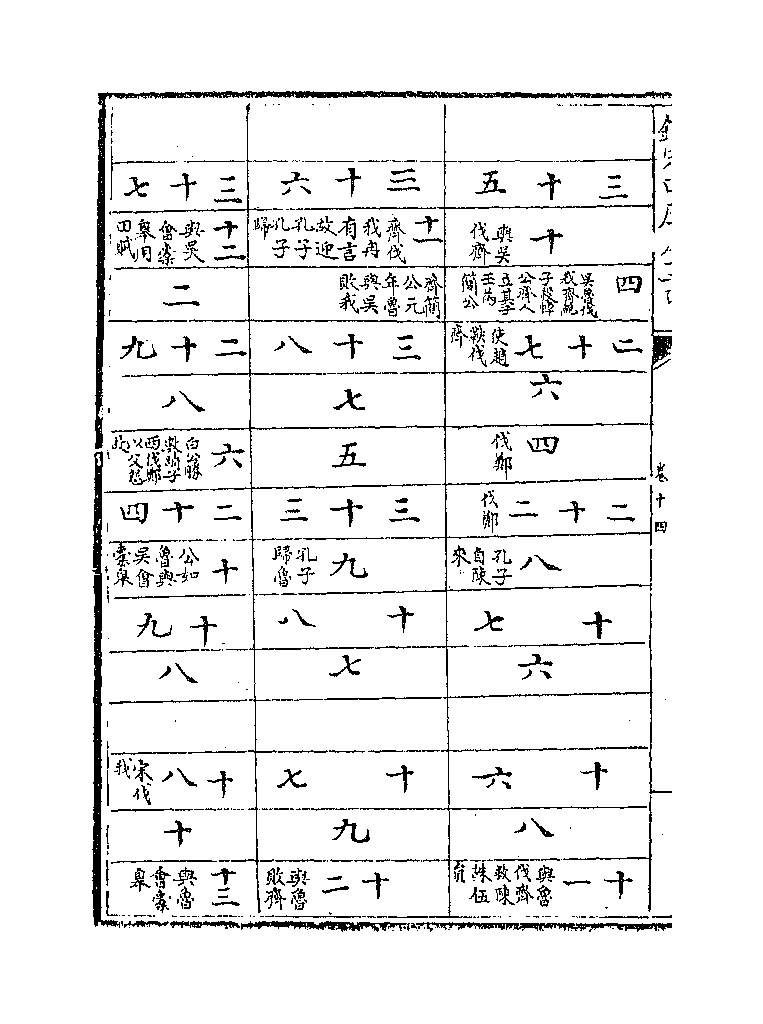 卷十四
三十五
十
與吳
伐齊
四
吳魯伐
我齊鮑
子殺悼
公齊人
立其子
壬為
簡公
二十七
使趙
鞅伐
齊
六
四
伐鄭
二十二
伐鄭
八
孔子
自陳
來
十七
六
十六
八
十一
與魯
伐齊
救陳
誅伍
員
三十六
十一
齊伐
我冉
有言
故迎
孔子
孔子
歸
齊簡
公元
年魯
與吳
敗我
三十八
七
五
三十三
九
孔子
歸魯
十八
七
十七
九
十二
與魯
敗齊
三十七
十二
與吳
會橐
皋用
田賦
二
二十九
八
六
白公勝
數請子
西伐鄭
以父怨
故
二十四
十
公如
魯與
吳會
橐皋
十九
八
十八
宋伐
我
十
十三
與魯
會橐
皋